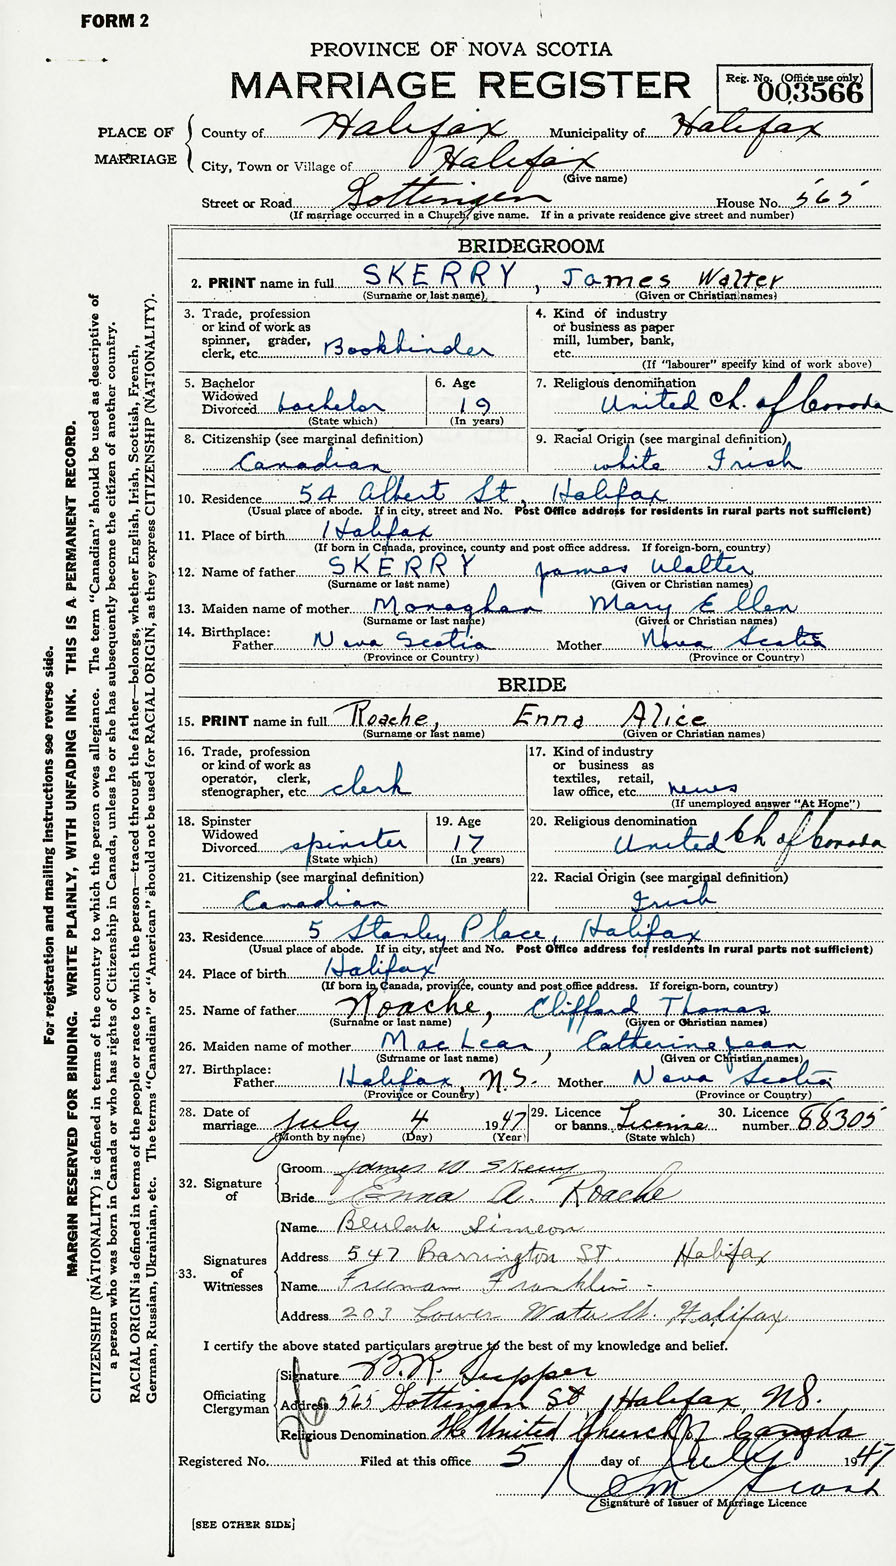 FORM 2
PROVINCE OF NOVA SCOTIA
MARRIAGE REGISTER
Reg. No. (Office use only)
003566
PLACE OF MARRIAGE
County of Halifax Municipality of Halifax
City, Town or Village of Halifax
(Give name)
Street or Road Gottingen House No. 565
(If marriage occurred in a Church, give name. If in a private residence give street and number)
BRIDEGROOM
2. PRINT name in full SKERRY, James Walter
(Surname or last name) (Given or Christian names)
3. Trade, profession or kind of work as spinner, grader, clerk, etc. Bookbinder
4. Kind of industry or business as paper mill, lumber, bank, etc.
(If "labourer" specify kind of work above)
5. Bachelor Widowed Divorced bachelor
(State which)
6. Age 19
(In years)
7. Religious denomination United Ch. of Canada
8. Citizenship (see marginal definition) Canadian
9. Racial Origin (see marginal definition) white Irish
10. Residence 54 Albert St, Halifax
(Usual place of abode. If in city, street and No. Post Office address for residents in rural parts not sufficient)
11. Place of birth Halifax
(If born in Canada, province, county and post office address. If foreign-born, country)
12. Name of father SKERRY James Walter
(Surname or last name) (Given or Christian names)
13. Maiden name of mother Monaghan Mary Ellen
(Surname or last name) (Given or Christian names)
14. Birthplace: Father Nova Scotia Mother Nova Scotia
(Province or Country) (Province or Country)
BRIDE
15. PRINT name in full Roache, Enna Alice
(Surname or last name) (Given or Christian names)
16. Trade, profession or kind of work as operator, clerk, stenographer, etc. clerk
17. Kind of industry or business as textiles, retail, law office, etc. news
(If unemployed answer "At Home")
18. Spinster Widowed Divorced spinster
(State which)
19. Age 17
(In years)
20. Religious denomination United Ch of Canada
21. Citizenship (see marginal definition) Canadian
22. Racial Origin (see marginal definition) Irish
23. Residence 5 Stanley Place, Halifax
(Usual place of abode. If in city, street and No. Post Office address for residents in rural parts not sufficient)
24. Place of birth Halifax
(If born in Canada, province, county and post office address. If foreign-born, country)
25. Name of father Roache, Clifford Thomas
(Surname or last name) (Given or Christian names)
26. Maiden name of mother MacLean, Catherine Jean
(Surname or last name) (Given or Christian names)
27. Birthplace: Father Halifax, N.S. Mother Nova Scotia
(Province or Country) (Province or Country)
28. Date of marriage July 4 1947
(Month by name) (Day) (Year)
29. Licence or banns License
(State which)
30. Licence number 88305
32. Signature of
Groom James W Skerry
Bride Enna A. Roache
33. Signatures of Witnesses
Name Beulah Simeon
Address 547 Barrington St. Halifax
Name Freeman Franklin
Address 203 Lower Water St. Halifax
I certify the above stated particulars are true to the best of my knowledge and belief.
Officiating Clergyman
Signature B.K. Tupper
Address 565 Gottingen St, Halifax, N.S.
Religious Denomination The United Church of Canada
Registered No. Filed at this office 5 day of July 1947
Signature of Issuer of Marriage Licence
[SEE OTHER SIDE]
For registration and mailing instructions see reverse side.
MARGIN RESERVED FOR BINDING. WRITE PLAINLY, WITH UNFADING INK. THIS IS A PERMANENT RECORD.
CITIZENSHIP (NATIONALITY) is defined in terms of the country to which the person owes allegiance. The term "Canadian" should be used as descriptive of
a person who was born in Canada or who has rights of Citizenship in Canada, unless he or she has subsequently become the citizen of another country.
RACIAL ORIGIN is defined in terms of the people or race to which the person—traced through the father—belongs, whether English, Irish, Scottish, French,
German, Russian, Ukrainian, etc. The terms "Canadian" or "American" should not be used for RACIAL ORIGIN, as they express CITIZENSHIP (NATIONALITY).